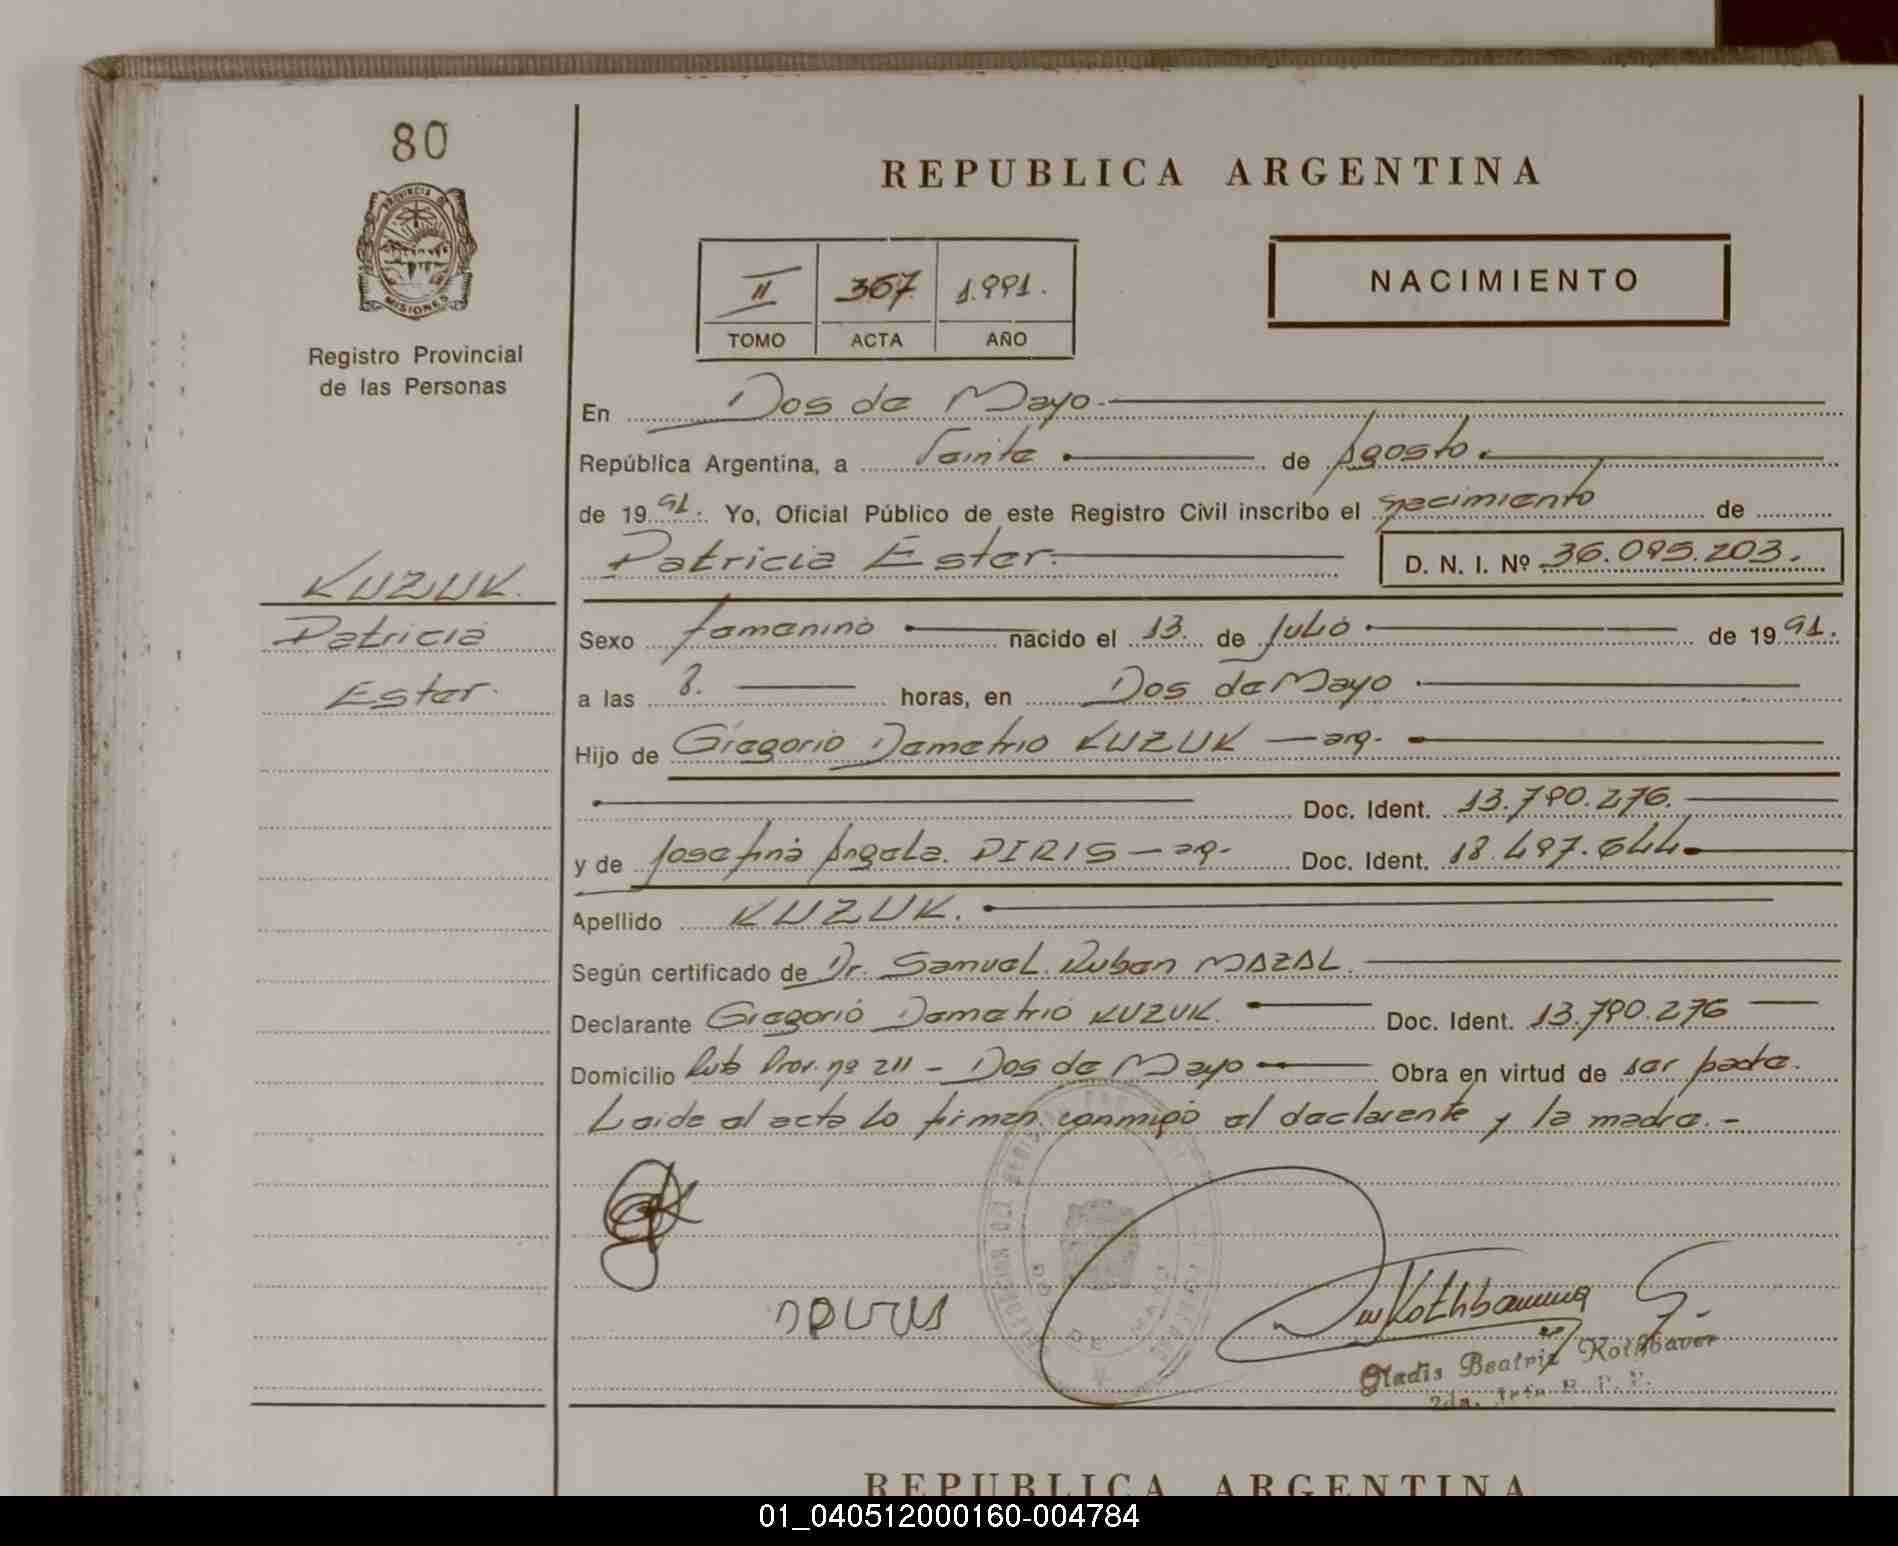 80
PROVINCIA DE
MISIONES
Registro Provincial
de las Personas
REPUBLICA ARGENTINA
II 367 1.991.
TOMO ACTA AÑO
NACIMIENTO
En Dos de Mayo.
República Argentina, a Veinte de Agosto.
de 19 91. Yo, Oficial Público de este Registro Civil inscribo el nacimiento de
Patricia Ester. D. N. I. Nº 36.095.203.
KUZUK.
Patricia
Ester.
Sexo femenino nacido el 13. de Julio de 19 91.
a las 8. horas, en Dos de Mayo
Hijo de Gregorio Demetrio KUZUK — arg.
Doc. Ident. 13.790.276.
y de Josefina Angela. PIRIS — ag. Doc. Ident. 18.497.644
Apellido KUZUK.
Según certificado de Dr. Samuel. Ruben MAZAL.
Declarante Gregorio Demetrio KUZUK. Doc. Ident. 13.790.276
Domicilio Ruta Prov. nº 211 - Dos de Mayo Obra en virtud de ser padre.
Leida el acta lo firman conmigo el declarente y la madre. -
Gladis Beatriz Kothbaver
2da. Jefa R. P. P.
REPUBLICA ARGENTINA
01_040512000160-004784